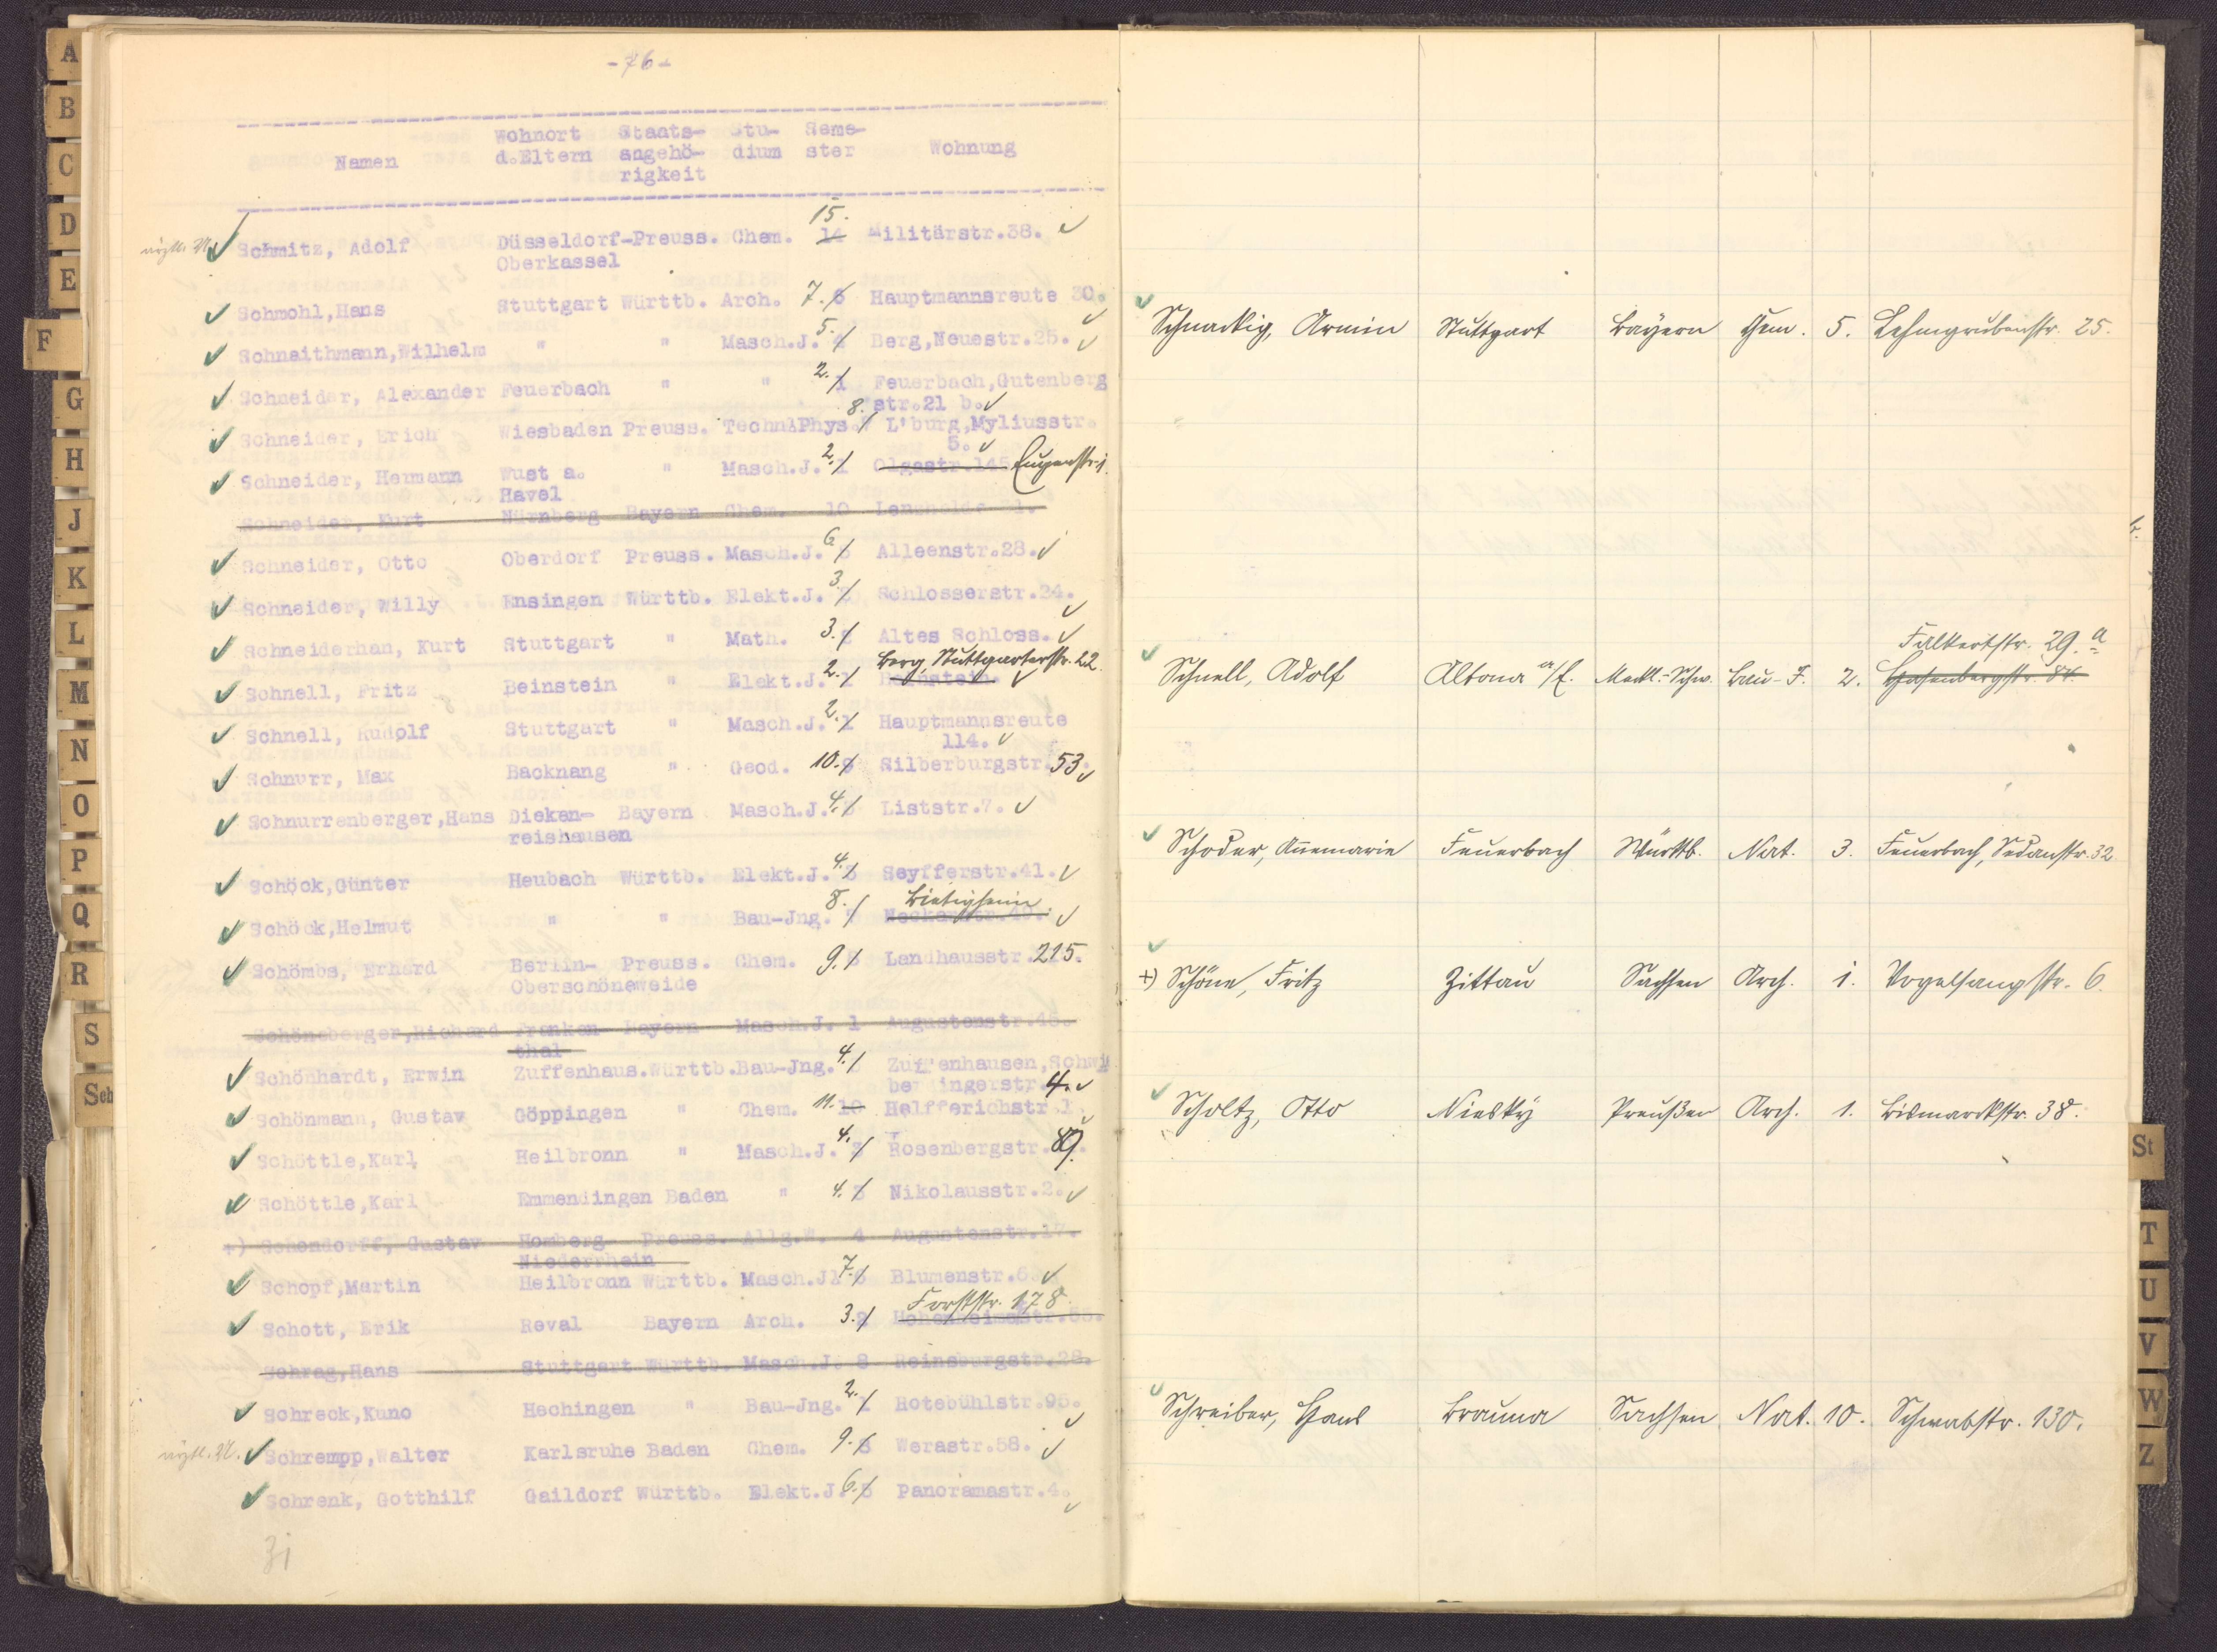 -76-
Namen Wohnort d.Eltern Staats-angehö-rigkeit Stu-dium Seme-ster Wohnung
15.
Schmitz, Adolf Düsseldorf-Preuss. Chem. 14 Militärstr.38.
Oberkassel
Schmohl,Hans Stuttgart Württb. Arch. 7. 6 Hauptmannsreute 30.
Schneithmann,Wilhelm " " Masch.J. 5. 4 Berg,Neuestr.25.
Schneider, Alexander Feuerbach " " 2. 1 Feuerbach,Gutenberg
str.21 b.
Schneider, Erich Wiesbaden Preuss. Techn.Phys. 8. L'burg,Myliusstr.
5.
Schneider, Hermann Wust a. " Masch.J. 2. 1 Olgastr.145 Eugenstr. 1.
Havel
Schneider, Kurt Nürnberg Bayern Chem. 10
Schneider, Otto Oberdorf Preuss. Masch.J. 6 5 Alleenstr.28.
Schneider, Willy Ensingen Württb. Elekt.J. 3 Schlosserstr.24.
Schneiderhan, Kurt Stuttgart " Math. 3. 2 Altes Schloss.
Berg Stuttgarterstr. 22.
Schnell, Fritz Beinstein " Elekt.J. 2. 1 Beinstein.
Schnell, Rudolf Stuttgart " Masch.J. 2. 1 Hauptmannsreute
114.
Schnurr, Max Backnang " Geod. 10. 9 Silberburgstr. 53
Schnurrenberger,Hans Dieken- Bayern Masch.J. 4. 3 Liststr.7.
reishausen
Schöck,Günter Heubach Württb. Elekt.J. 4. 3 Seyfferstr.41.
Bietigheim
Schöck,Helmut " " Bau-Jng. 8. 7 Neckarstr.
Schömbs, Erhard Berlin- Preuss. Chem. 9. 8 Landhausstr. 215.
Oberschöneweide
Schönsberger,Richard Franken- Bayern Masch.J. 1 Augustenstr.46.
thal
Schönhardt, Erwin Zuffenhaus.Württb.Bau-Jng. 4. 3 Zuffenhausen,Schwi
berdingerstr. 4.
Schönmann, Gustav Göppingen " Chem. 11. 10 Helfferichstr.1
Schöttle,Karl Heilbronn " Masch.J. 4. 3 Rosenbergstr. 89.
Schöttle,Karl Emmendingen Baden " 4. 3 Nikolausstr.2.
+) Schondorff, Gustav Homberg- Preuss. Allg.W. 4 Augustenstr.17.
Niederrhein
Schopf,Martin Heilbronn Württb. Masch.J. 7. 6 Blumenstr.
Forststr. 178.
Schott, Erik Reval Bayern Arch. 3. 2 Hohenheimstr.
Schrag,Hans Stuttgart Württb. Masch.J. 8 Reinsburgstr.28.
Schreck,Kuno Hechingen " Bau-Jng. 2. 1 Rotebühlstr.95.
Schrempp,Walter Karlsruhe Baden Chem. 9. 8 Werastr.58.
Schrenk, Gotthilf Gaildorf Württb. Elekt.J. 6. 5 Panoramastr.4.
31
Schnackig, Armin Stuttgart Bayern Chem. 5. Lehmgrubenstr. 25.
Falkertstr. 29. a
Schnell, Adolf Altona a/E. Meckl.-Schw. Bau-J. 2. Hasenbergstr. 84.
Schoder, Annemarie Feuerbach Württb. Nat. 3. Feuerbach, Sedanstr. 32
+) Schöne, Fritz Zittau Sachsen Arch. 1. Vogelsangstr. 6.
Scholtz, Otto Niesky Preußen Arch. 1. Bismarckstr. 38.
Schreiber, Hans Brauna Sachsen Nat. 10. Schwabstr. 130.
A
B
C
D
E
F
G
H
J
K
L
M
N
O
P
Q
R
S
Sch
St
T
U
V
W
Z